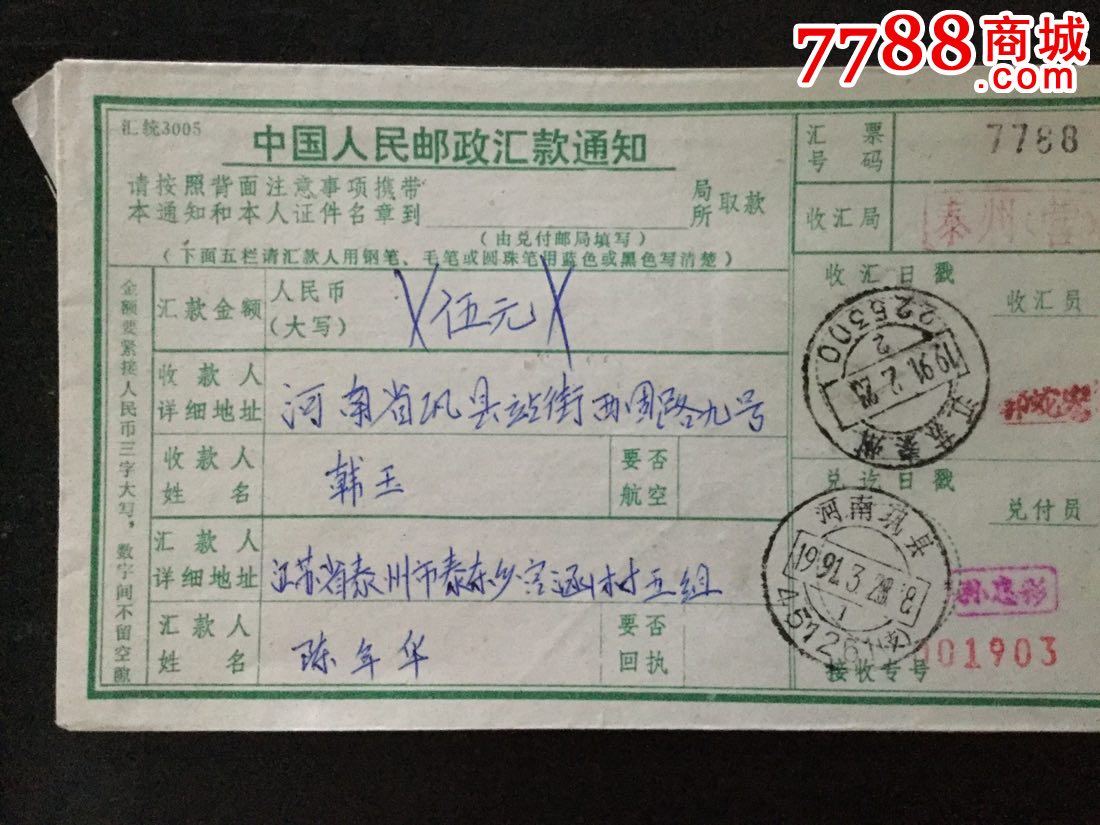 7788商城
.com
汇统3005
中国人民邮政汇款通知
请按照背面注意事项携带
本通知和本人证件名章到 局所 取款
(由兑付邮局填写)
(下面五栏请汇款人用钢笔、毛笔或圆珠笔用蓝色或黑色写清楚)
金额要紧接人民币三字大写,数字间不留空隙
汇款金额 人民币(大写) 伍元
收款人详细地址 河南省巩县站街西周路九号
收款人姓名 韩玉
要否航空
汇款人详细地址 江苏省泰州市泰东乡宫涵村五组
汇款人姓名 陈年华
要否回执
汇票号码 7788
收汇局 泰州
收汇日戳
225300
1991.2.23
2
江苏泰州
收汇员
兑讫日戳
河南巩县
1991.3.28.8
1
兑付员
孙忠彩
接收专号 001903